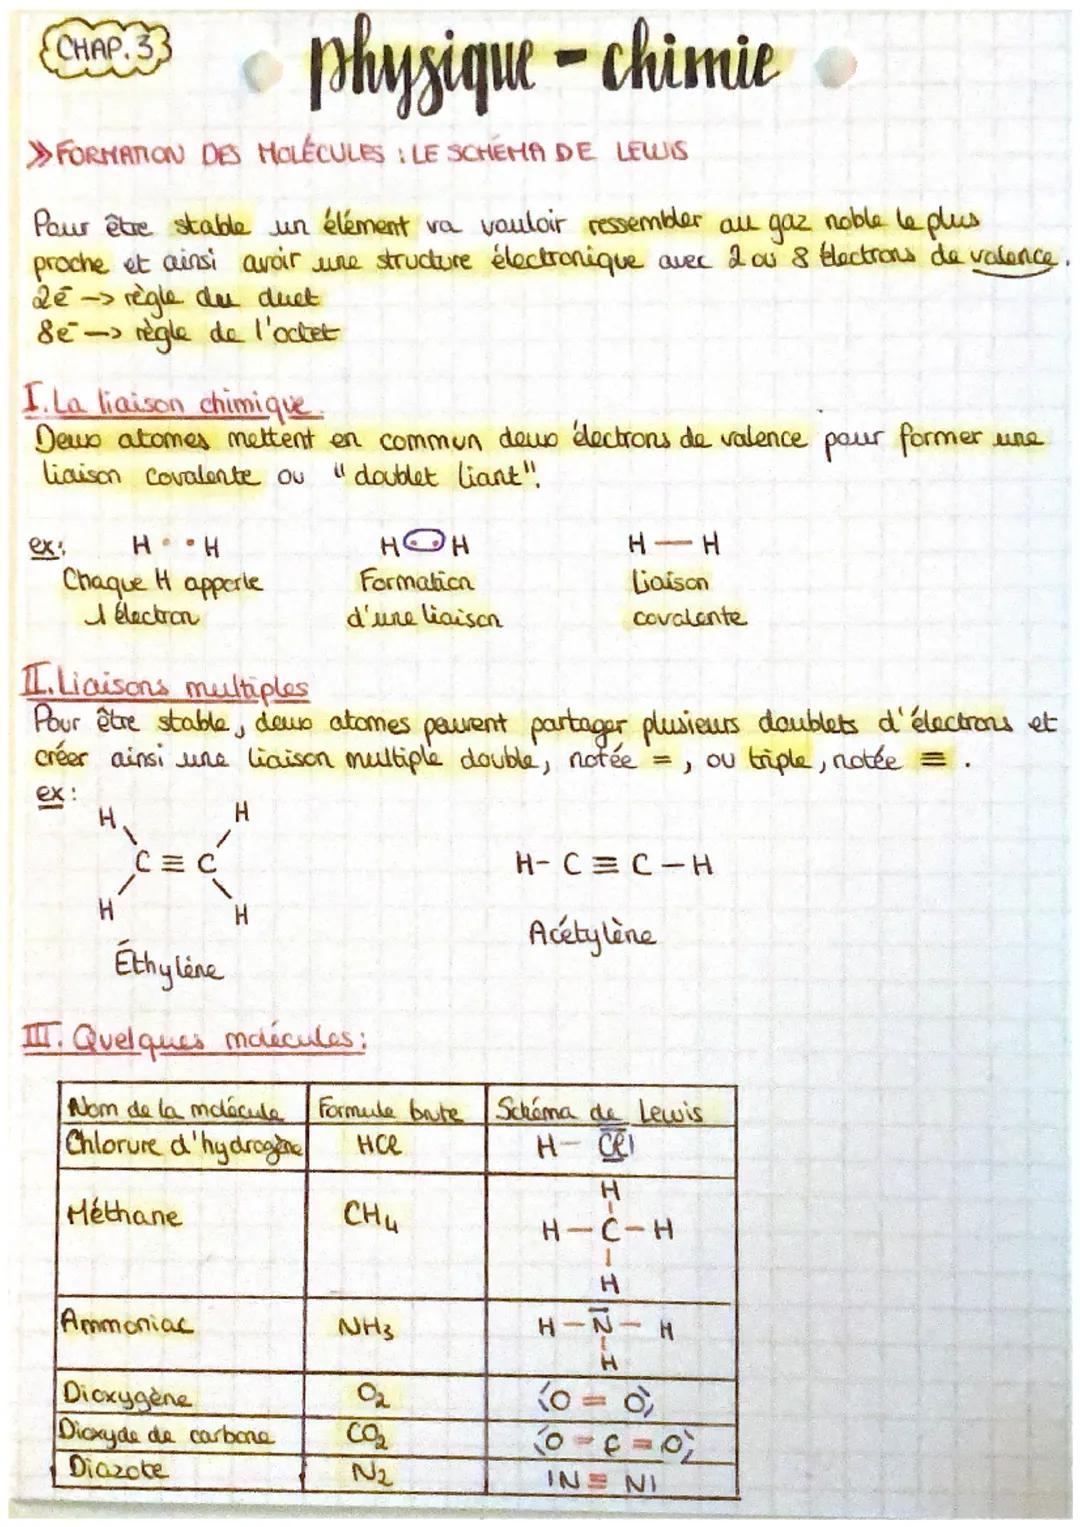 CHAP. 3
physique - chimie
>> FORMATION DES MOLÉCULES : LE SCHÉMA DE LEWIS
Pour être stable un élément va vouloir ressembler au gaz noble le plus
proche et ainsi avoir une structure électronique avec 2 ou 8 électrons de valence.
2e⁻ -> règle du duet
8e⁻ -> règle de l'octet
I. La liaison chimique.
Deux atomes mettent en commun deux électrons de valence pour former une
liaison covalente ou "doublet liant".
ex: H • • H H •• H H — H
Chaque H apporte Formation Liaison
1 électron d'une liaison covalente
II. Liaisons multiples
Pour être stable, deux atomes peuvent partager plusieurs doublets d'électrons et
créer ainsi une liaison multiple double, notée =, ou triple, notée ≡.
ex:
H H
C ≡ C H - C ≡ C - H
H H
Acétylène
Éthylène
III. Quelques molécules :
Nom de la molécule Formule brute Schéma de Lewis
Chlorure d'hydrogène HCl H - Cl|
H
Méthane CH4 H - C - H
H
Ammoniac NH3 H - N - H
H
Dioxygène O2 O = O
Dioxyde de carbone CO2 O = C = O
Diazote N2 |N ≡ N|